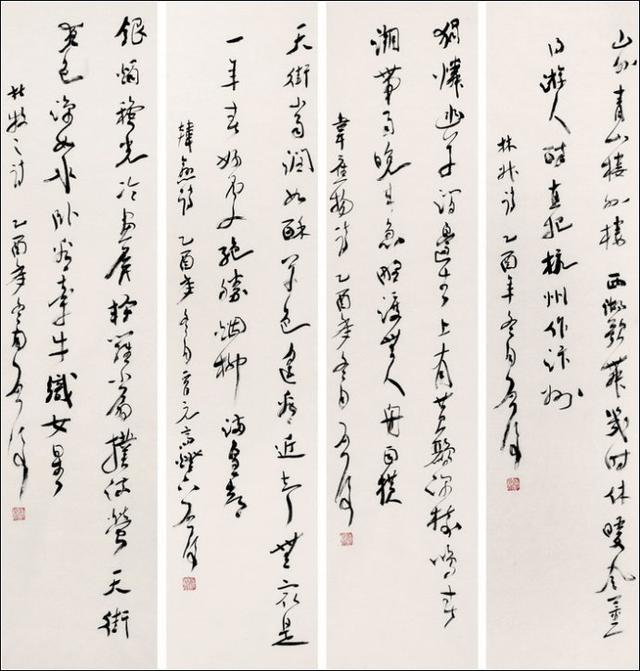 山外青山樓外樓西湖歌舞幾時休暖風薰
得遊人醉直把杭州作汴州
林升詩 乙酉年冬月
獨憐幽草澗邊生上有黃鸝深樹鳴春
潮帶雨晚來急野渡無人舟自橫
韋應物詩 乙酉年冬月
天街小雨潤如酥草色遙看近却無最是
一年春好處絕勝烟柳滿皇都
韓愈詩 乙酉年冬月
銀燭穐光冷畫屏輕羅小扇撲流螢天街
夜色涼如水卧看牽牛織女星
杜牧之詩 乙酉年冬月